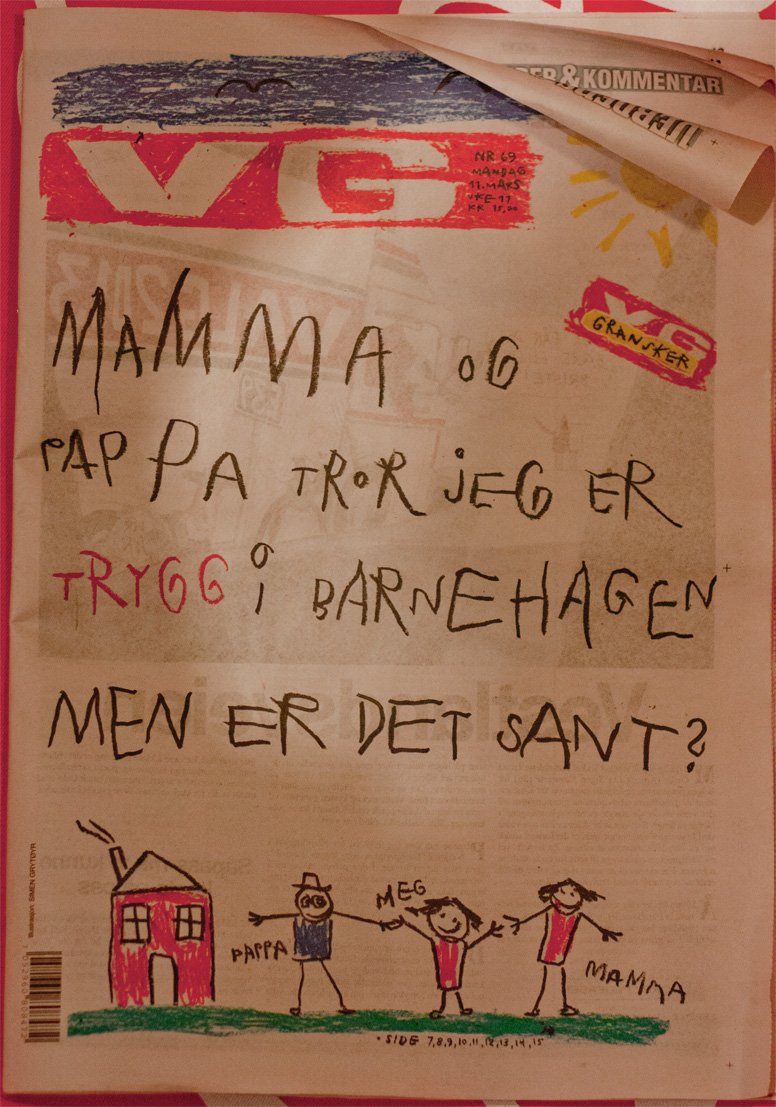 & KOMMENTAR
VG
NR 69
MANDAG
11. MARS
UKE 11
KR 15,00
VG
GRANSKER
MAMMA OG
PAPPA TROR JEG ER
TRYGG I BARNEHAGEN
MEN ER DET SANT?
MEG
PAPPA
MAMMA
• SIDE 7,8,9,10,11,12,13,14,15
Illustrasjon: SIMEN GRYTØYR